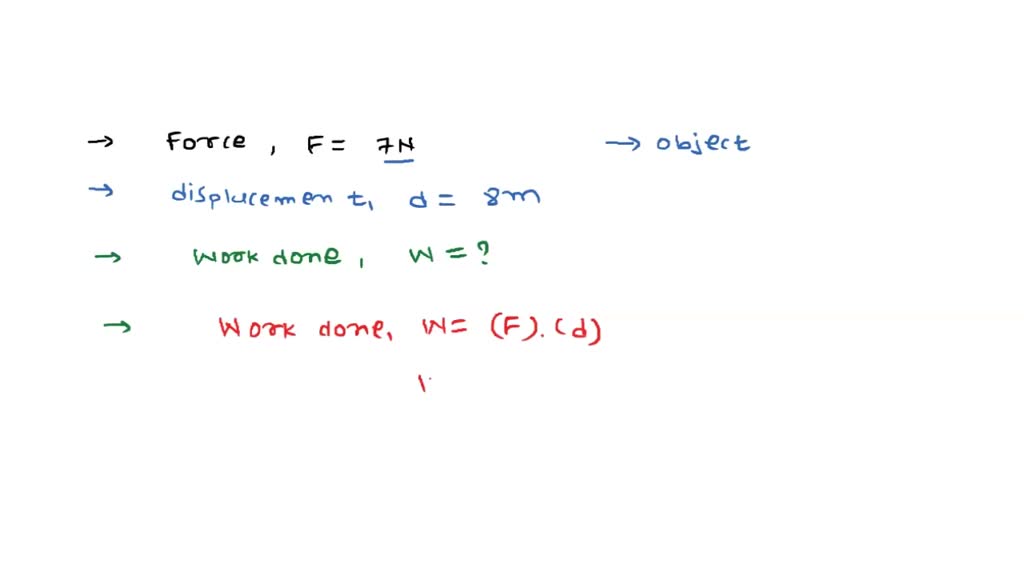 → Force, F = 7N → object
→ displacement, d = 8m
→ Work done, W = ?
→ Work done, W = (F).(d)